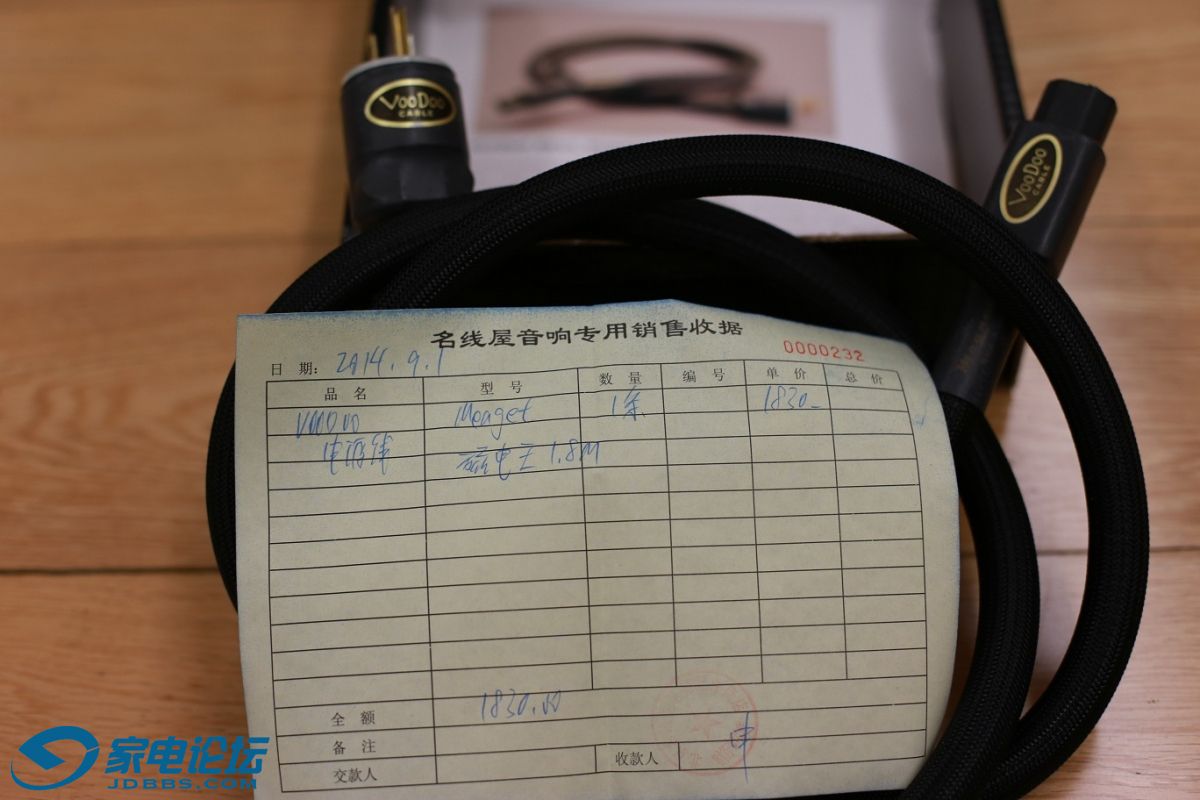 VOODOO
CABLE
VOODOO
CABLE
名线屋音响专用销售收据
0000232
日 期: 2014.9.1
品 名 型 号 数 量 编 号 单 价 总 价
1条 1830-
电源线 电王 1.8M
全 额 1830.00
备 注
交款人 收款人
家电论坛
JDBBS.COM